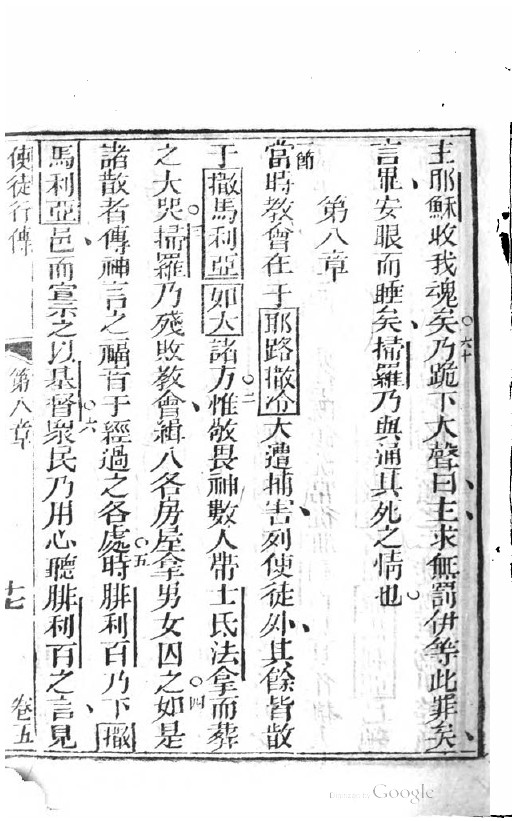 主耶穌收我魂矣○六十乃跪下大聲曰、主、求無罰伊等此罪矣、
言畢、安眼而睡矣、掃羅乃與通其死之情也。
第八章
節當時教會在于耶路撒冷大遭捕害、列使徒外、其餘皆散
于撒馬利亞如大諸方○二惟敬畏神數人帶士氐法拿而葬
之大哭○三掃羅乃殘敗教會、緝入各房屋拿男女囚之○四如是
諸散者傳神言之福音于經過之各處○五時腓利百乃下撒
馬利亞邑、而宣示之以基督○六眾民乃用心聽腓利百之言、見
使徒行傳 第八章 十七 卷五
Digitized by Google